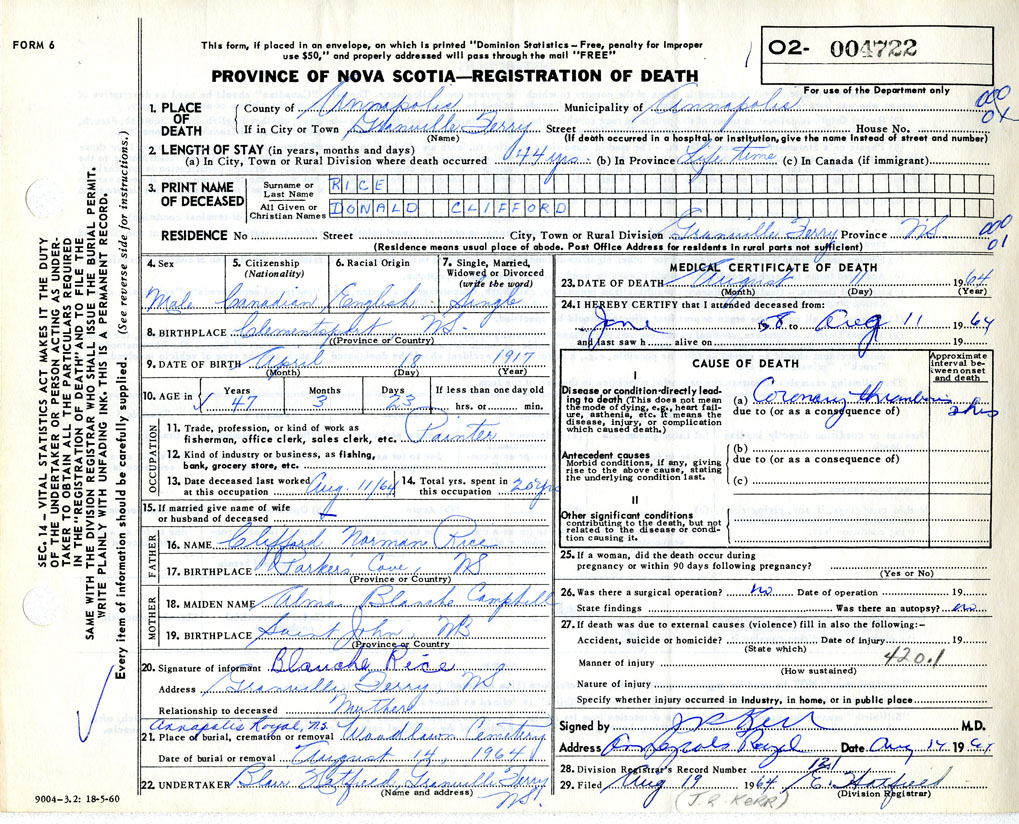 FORM 6
This form, if placed in an envelope, on which is printed "Dominion Statistics – Free, penalty for improper
use $50," and properly addressed will pass through the mail "FREE"
PROVINCE OF NOVA SCOTIA—REGISTRATION OF DEATH
O2- 004722
For use of the Department only
SEC. 14 – VITAL STATISTICS ACT MAKES IT THE DUTY
OF THE UNDERTAKER OR PERSON ACTING AS UNDER-
TAKER TO OBTAIN ALL THE PARTICULARS REQUIRED
IN THE "REGISTRATION OF DEATH" AND TO FILE THE
SAME WITH THE DIVISION REGISTRAR WHO SHALL ISSUE THE BURIAL PERMIT.
WRITE PLAINLY WITH UNFADING INK. THIS IS A PERMANENT RECORD.
Every item of information should be carefully supplied. (See reverse side for instructions.)
1. PLACE OF DEATH County of Annapolis Municipality of Annapolis 000
If in City or Town Granville Ferry Street House No. 01
(Name) (If death occurred in a hospital or institution, give the name instead of street and number)
2. LENGTH OF STAY (in years, months and days)
(a) In City, Town or Rural Division where death occurred 44 yrs. (b) In Province Life time (c) In Canada (if immigrant)
3. PRINT NAME OF DECEASED Surname or Last Name RICE
All Given or Christian Names DONALD CLIFFORD
RESIDENCE No Street City, Town or Rural Division Granville Ferry Province NS 000 01
(Residence means usual place of abode. Post Office Address for residents in rural parts not sufficient)
4. Sex Male
5. Citizenship (Nationality) Canadian
6. Racial Origin English
7. Single, Married, Widowed or Divorced (write the word) Single
8. BIRTHPLACE Clementsport NS.
(Province or Country)
9. DATE OF BIRTH April 18 1917
(Month) (Day) (Year)
10. AGE in Years 47 Months 3 Days 23 If less than one day old hrs. or min.
OCCUPATION
11. Trade, profession, or kind of work as
fisherman, office clerk, sales clerk, etc. Painter
12. Kind of industry or business, as fishing,
bank, grocery store, etc.
13. Date deceased last worked at this occupation Aug. 11/64
14. Total yrs. spent in this occupation 20 yrs
15. If married give name of wife
or husband of deceased
FATHER
16. NAME Clifford Norman Rice
17. BIRTHPLACE Parkers Cove, NS
(Province or Country)
MOTHER
18. MAIDEN NAME Alma Blanche Campbell
19. BIRTHPLACE Saint John, NB
(Province or Country)
20. Signature of informant Blanche Rice
Address Granville Ferry NS.
Relationship to deceased Mother
Annapolis Royal, N.S.
21. Place of burial, cremation or removal Woodlawn Cemetery
Date of burial or removal August 14, 1964
22. UNDERTAKER Blair Hatfield, Granville Ferry
(Name and address) NS.
9004–3.2: 18-5-60
MEDICAL CERTIFICATE OF DEATH
23. DATE OF DEATH August 11 1964
(Month) (Day) (Year)
24. I HEREBY CERTIFY that I attended deceased from:
19 to Aug 11 1964
and last saw h alive on 19
CAUSE OF DEATH
Approximate interval between onset and death
I
Disease or condition directly lead-
ing to death (This does not mean
the mode of dying, e.g., heart fail-
ure, asthenia, etc. It means the
disease, injury, or complication
which caused death.)
(a) Coronary thrombosis
due to (or as a consequence of)
Antecedent causes
Morbid conditions, if any, giving
rise to the above cause, stating
the underlying condition last.
(b)
due to (or as a consequence of)
(c)
II
Other significant conditions
contributing to the death, but not
related to the disease or condi-
tion causing it.
25. If a woman, did the death occur during
pregnancy or within 90 days following pregnancy?
(Yes or No)
26. Was there a surgical operation? no Date of operation 19
State findings Was there an autopsy? no
27. If death was due to external causes (violence) fill in also the following:–
Accident, suicide or homicide? Date of injury 19
(State which)
Manner of injury 420.1
(How sustained)
Nature of injury
Specify whether injury occurred in industry, in home, or in public place
Signed by J R Kerr M.D.
Address Annapolis Royal Date Aug 14 1964
28. Division Registrar's Record Number 121
29. Filed Aug 19 1964 E. Hatfield
(J. R. KERR) (Division Registrar)